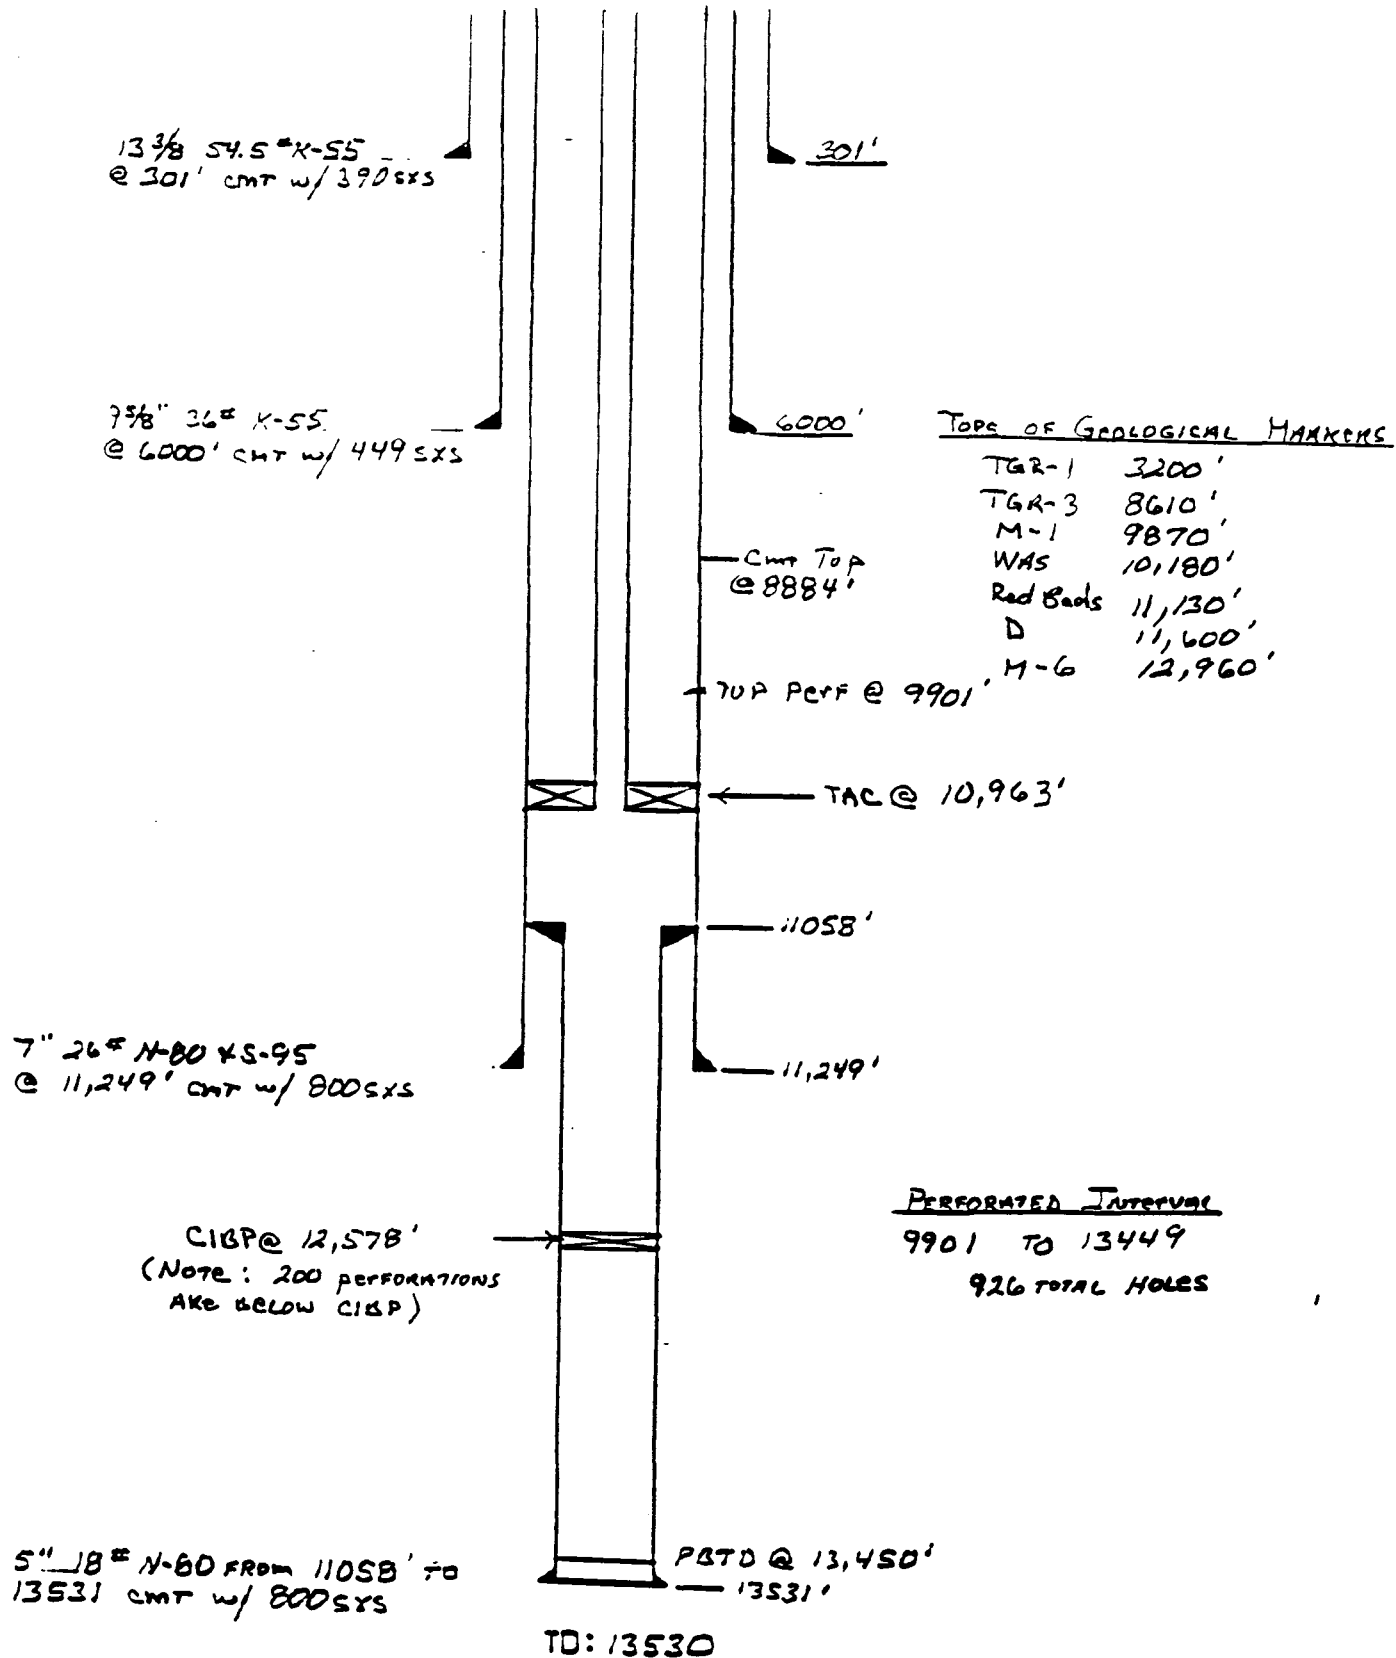 13 3/8 54.5 # K-55
@ 301' cmt w/ 390 sxs
301'
7 5/8" 36# K-55
@ 6000' cmt w/ 449 sxs
6000'
Tops of Geological Markers
TGR-1 3200'
TGR-3 8610'
M-1 9870'
WAS 10,180'
Red Beds 11,130'
D 11,600'
M-6 12,960'
Cmt Top
@ 8884'
Top Perf @ 9901'
TAC @ 10,963'
11058'
7" 26# N-80 & S-95
@ 11,249' cmt w/ 800 sxs
11,249'
CIBP @ 12,578'
(Note: 200 perforations
are below CIBP)
Perforated Interval
9901 to 13449
926 total holes
5" 18# N-80 from 11058' to
13531 cmt w/ 800 sxs
PBTD @ 13,450'
13531'
TD: 13530